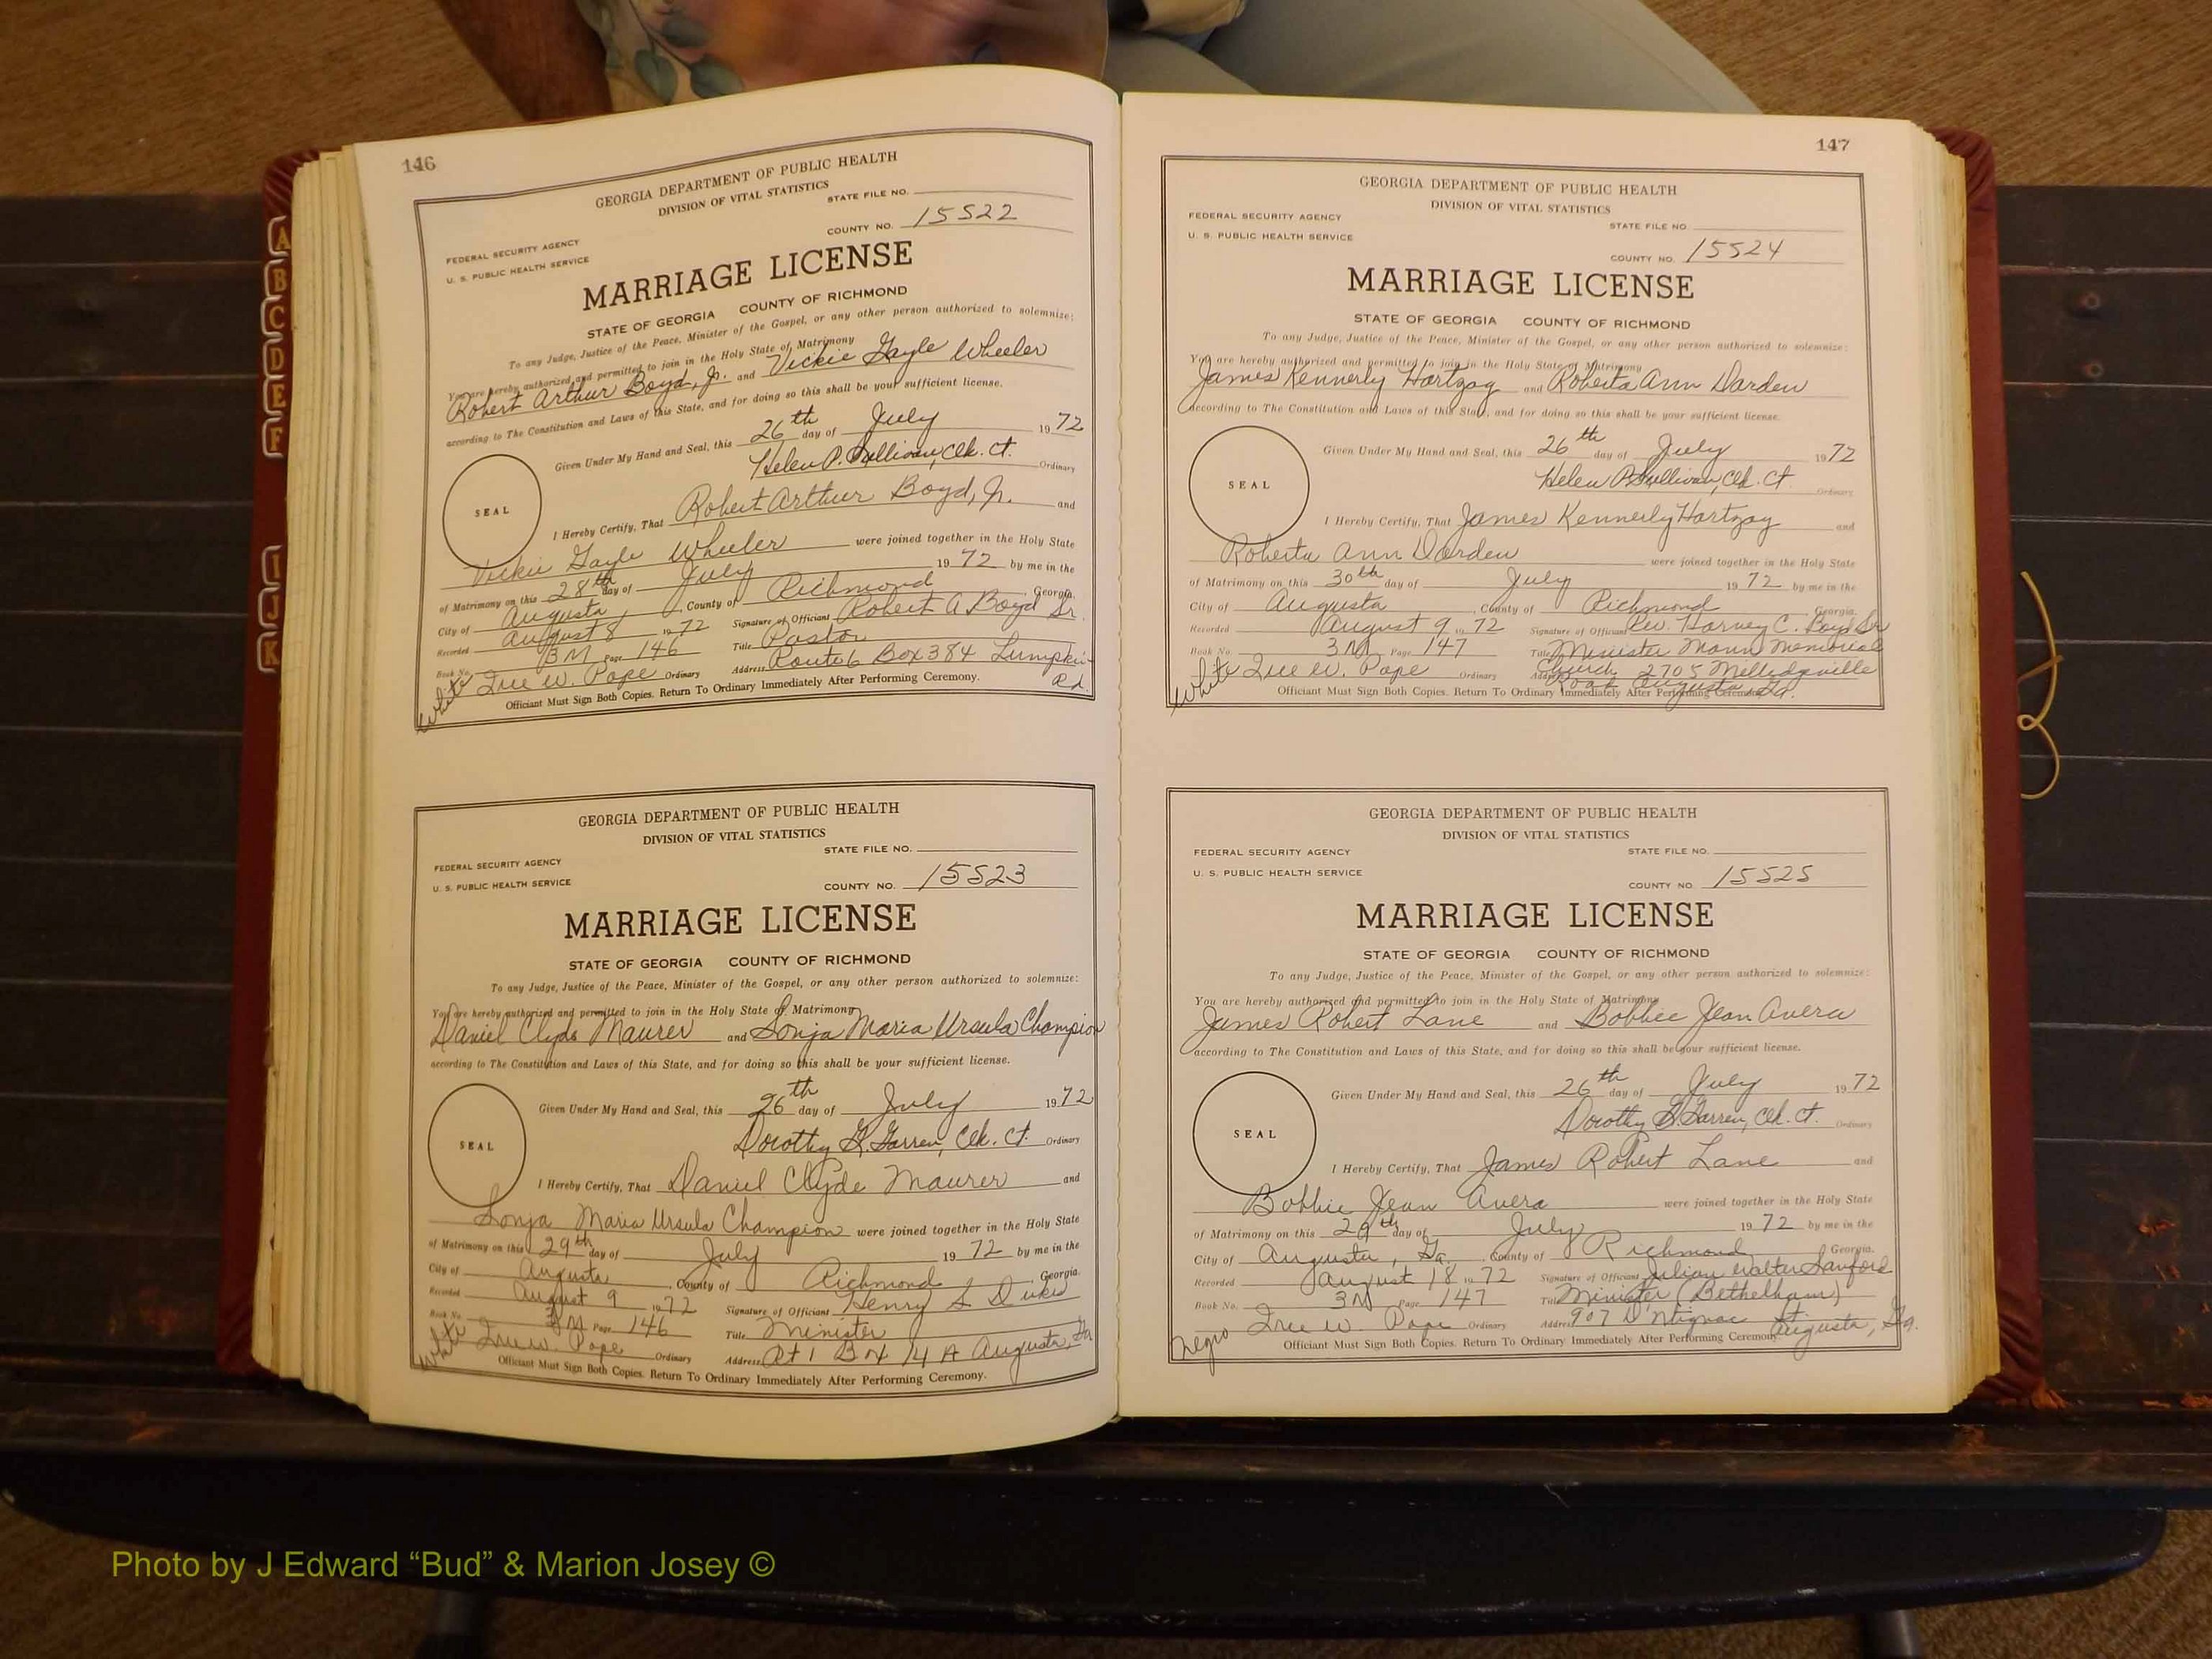 A
B
C
D
E
F
I
J
K
146
GEORGIA DEPARTMENT OF PUBLIC HEALTH
DIVISION OF VITAL STATISTICS
STATE FILE NO.
FEDERAL SECURITY AGENCY
U. S. PUBLIC HEALTH SERVICE
COUNTY NO. 15522
MARRIAGE LICENSE
STATE OF GEORGIA COUNTY OF RICHMOND
To any Judge, Justice of the Peace, Minister of the Gospel, or any other person authorized to solemnize:
You are hereby authorized and permitted to join in the Holy State of Matrimony
Robert Arthur Boyd, Jr. and Vickie Gayle Wheeler
according to The Constitution and Laws of this State, and for doing so this shall be your sufficient license.
Given Under My Hand and Seal, this 26th day of July 1972
Helen P. Sullivan, Clk. Ct. Ordinary
SEAL
I Hereby Certify, That Robert Arthur Boyd, Jr. and
Vickie Gayle Wheeler were joined together in the Holy State
of Matrimony on this 28th day of July 1972 by me in the
City of Augusta, County of Richmond, Georgia.
Recorded August 8 1972 Signature of Officiant Robert A Boyd Sr.
Book No. 3M Page 146 Title Pastor
White Ordinary Address Route 6 Box 384 Lumpkin Rd.
Officiant Must Sign Both Copies. Return To Ordinary Immediately After Performing Ceremony.
GEORGIA DEPARTMENT OF PUBLIC HEALTH
DIVISION OF VITAL STATISTICS
STATE FILE NO.
FEDERAL SECURITY AGENCY
U. S. PUBLIC HEALTH SERVICE
COUNTY NO. 15523
MARRIAGE LICENSE
STATE OF GEORGIA COUNTY OF RICHMOND
To any Judge, Justice of the Peace, Minister of the Gospel, or any other person authorized to solemnize:
You are hereby authorized and permitted to join in the Holy State of Matrimony
Daniel Clyde Maurer and Sonja Maria Ursula Champion
according to The Constitution and Laws of this State, and for doing so this shall be your sufficient license.
Given Under My Hand and Seal, this 26th day of July 1972
Dorothy G. Garren, Clk. Ct. Ordinary
SEAL
I Hereby Certify, That Daniel Clyde Maurer and
Sonja Maria Ursula Champion were joined together in the Holy State
of Matrimony on this 29th day of July 1972 by me in the
City of Augusta, County of Richmond, Georgia.
Recorded August 9 1972 Signature of Officiant Henry S Dukes
Book No. 3M Page 146 Title Minister
White W. Pope Ordinary Address Rt 1 Box 14 A Augusta, Ga
Officiant Must Sign Both Copies. Return To Ordinary Immediately After Performing Ceremony.
147
GEORGIA DEPARTMENT OF PUBLIC HEALTH
DIVISION OF VITAL STATISTICS
FEDERAL SECURITY AGENCY
STATE FILE NO
U. S. PUBLIC HEALTH SERVICE
COUNTY NO. 15524
MARRIAGE LICENSE
STATE OF GEORGIA COUNTY OF RICHMOND
To any Judge, Justice of the Peace, Minister of the Gospel, or any other person authorized to solemnize:
You are hereby authorized and permitted to join in the Holy State of Matrimony
James Kennerly Hartzog and Roberta Ann Darden
according to The Constitution and Laws of this State, and for doing so this shall be your sufficient license.
Given Under My Hand and Seal, this 26th day of July 1972
Helen P. Sullivan, Clk. Ct. Ordinary
SEAL
I Hereby Certify, That James Kennerly Hartzog and
Roberta Ann Darden were joined together in the Holy State
of Matrimony on this 30th day of July 1972 by me in the
City of Augusta, County of Richmond Georgia.
Recorded August 9 1972 Signature of Officiant Rev. Harvey C. Boyd Sr
Book No. 3M Page 147 Title Minister Mann Memorial
White W. Pope Ordinary Address Church 2705 Milledgeville
Road Augusta Ga.
Officiant Must Sign Both Copies. Return To Ordinary Immediately After Performing Ceremony.
GEORGIA DEPARTMENT OF PUBLIC HEALTH
DIVISION OF VITAL STATISTICS
FEDERAL SECURITY AGENCY
STATE FILE NO.
U. S. PUBLIC HEALTH SERVICE
COUNTY NO 15525
MARRIAGE LICENSE
STATE OF GEORGIA COUNTY OF RICHMOND
To any Judge, Justice of the Peace, Minister of the Gospel, or any other person authorized to solemnize:
You are hereby authorized and permitted to join in the Holy State of Matrimony
James Robert Lane and Bobbie Jean Avera
according to The Constitution and Laws of this State, and for doing so this shall be your sufficient license.
Given Under My Hand and Seal, this 26th day of July 1972
Dorothy G. Garren, Clk. Ct. Ordinary
SEAL
I Hereby Certify, That James Robert Lane and
Bobbie Jean Avera were joined together in the Holy State
of Matrimony on this 29th day of July 1972 by me in the
City of Augusta, Ga. County of Richmond Georgia.
Recorded August 18 1972 Signature of Officiant Julian Walter Sanford
Book No. 3M Page 147 Title Minister (Bethelham)
Negro W. Pope Ordinary Address 907 D'Ntignac St.
Augusta, Ga.
Officiant Must Sign Both Copies. Return To Ordinary Immediately After Performing Ceremony.
Photo by J Edward “Bud” & Marion Josey ©